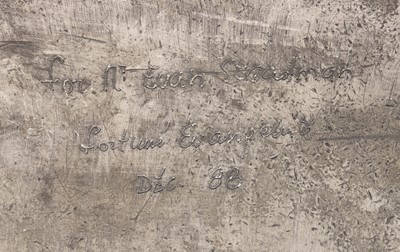 For Mr Evan Steadman
Fortuni Evangelino
Déc 88